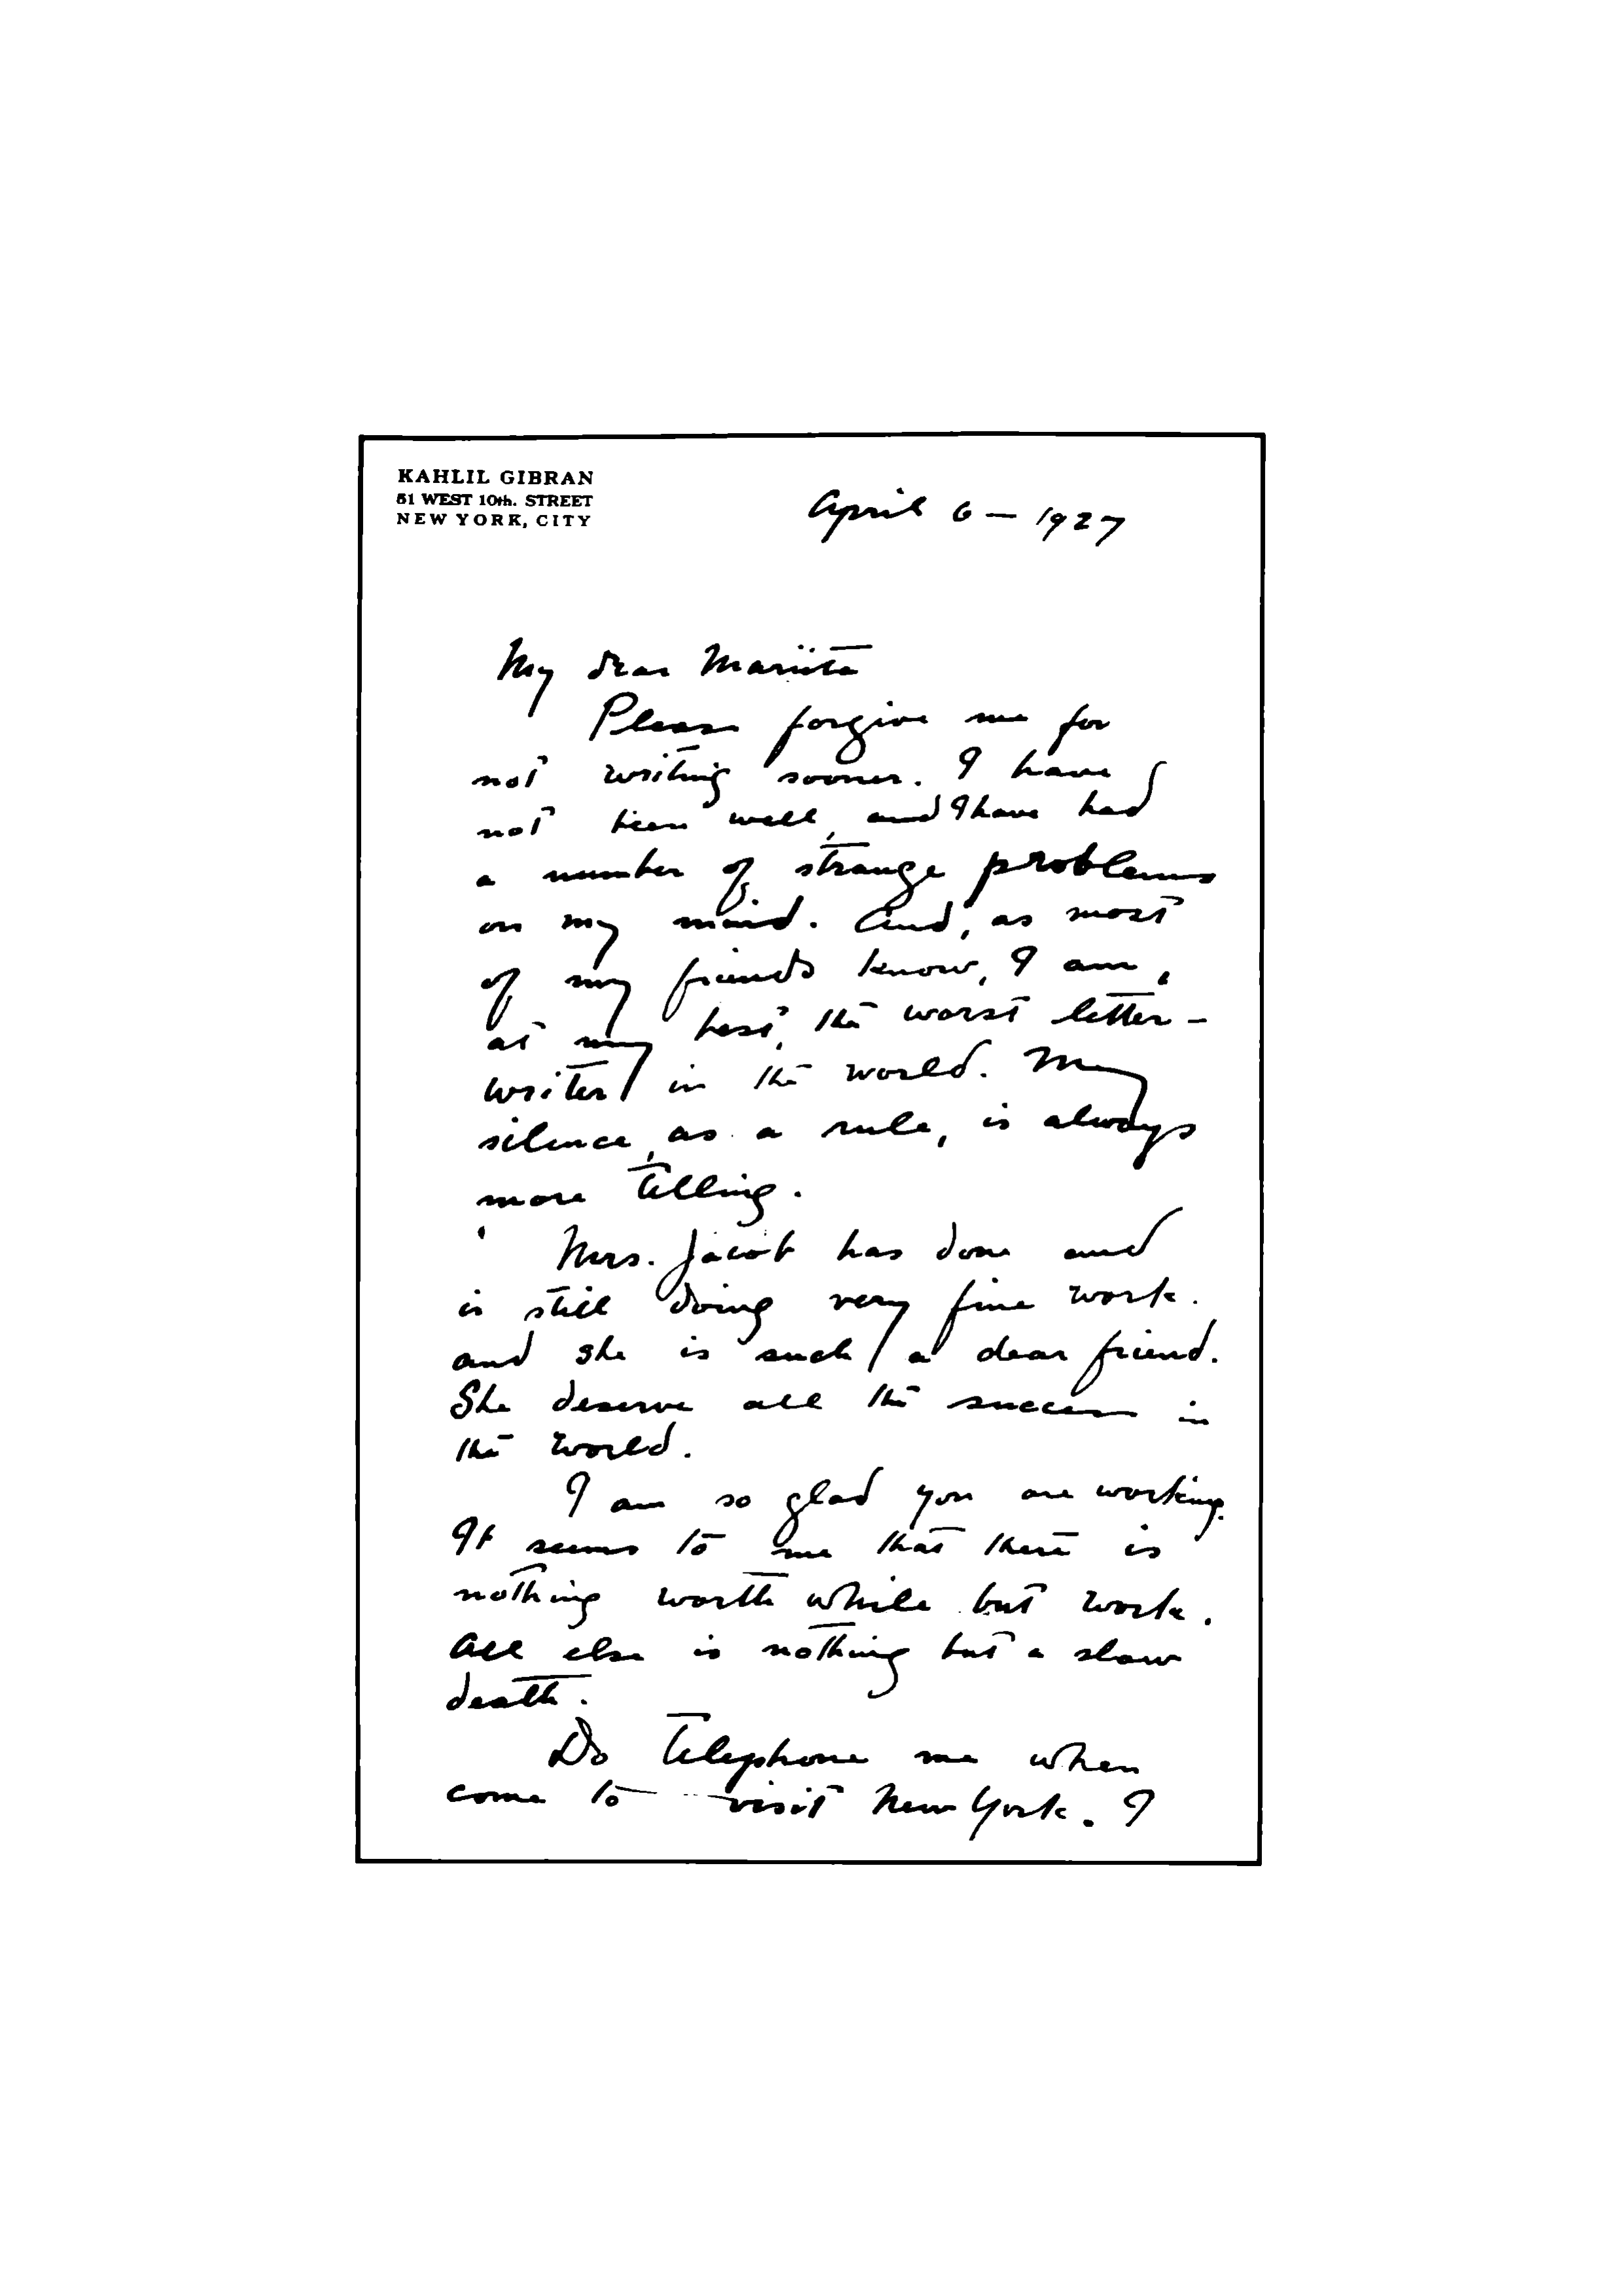 KAHLIL GIBRAN
51 WEST 10th. STREET
NEW YORK, CITY
April 6 — 1927
My dear Mariita
Please forgive me for
not writing sooner. I have
not been well, and I have had
a number of strange problems
on my mind. And, as most
of my friends know, I am,
at my best, the worst letter-
writer in the world. My
silence, as a rule, is always
more telling.
Mrs. Jacob has done and
is still doing very fine work.
and she is such a dear friend.
She deserve all the success in
the world.
I am so glad you are working.
It seems to me that there is
nothing worth while but work.
All else is nothing but a slow
death.
Do telephone me when
come to visit New York. I